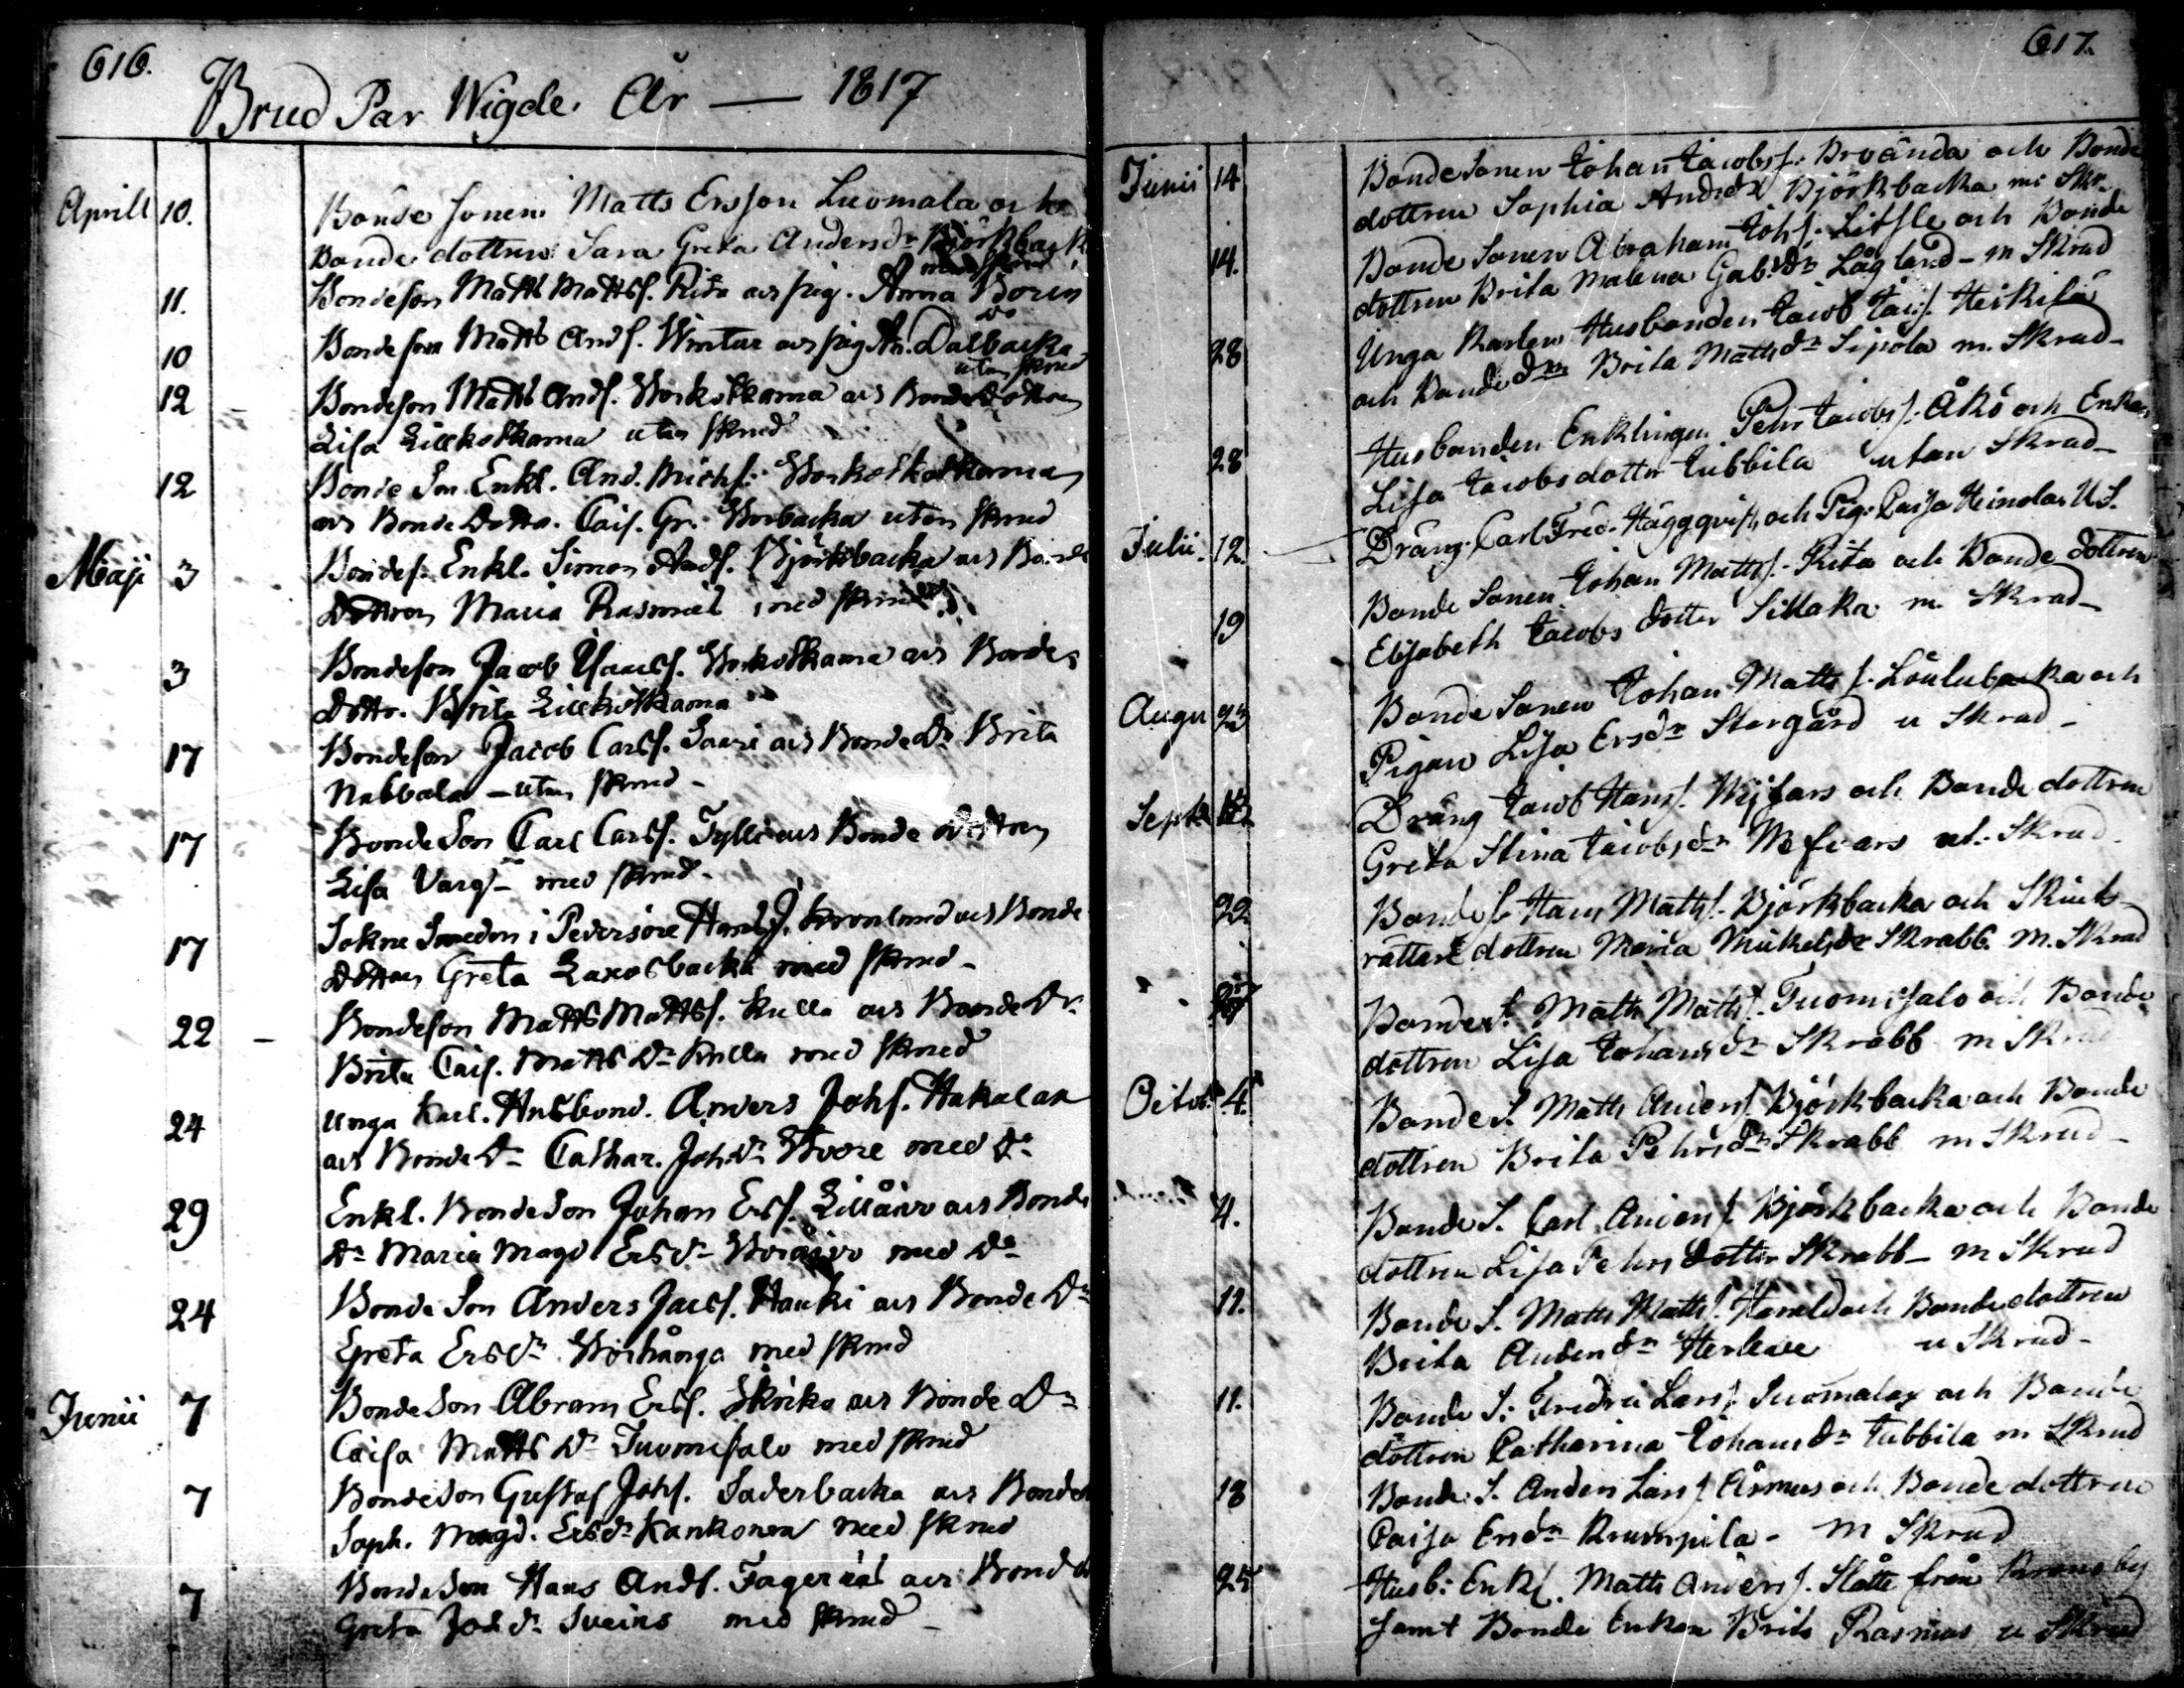 616.
Brud Par Wigde. År — 1817
Aprill 10. Bonde sonen Matts Ersson Luomala och
Bonde dottren Sara Greta Andersdr Björkback
med skrud
11. Bondeson Matts Mattss. Rita och pig. Anna Boren
do
10 Bondeson Matts Ands. Wintar och pig An. Dalbacka
utan skrud
12 Bondeson Matts Ands. och Bonde Dottren
Lisa Lillkotkama utan skrud
12 Bonde Son Enkl. And. Michs:
och Bonde Dottr. Cais. Gr. Storbacka utan skrud
Maji 3 Bondes. Enkl. Simon Ands. Björkbacka och Bonde
Dottren Maria Rasmus med skrud
3 Bondeson Jacob Isaacss. och Bonde
Dottr. Brita Lillkotkama
17 Bondeson Jacob Carlss. Saari och Bonde Dr Brita
Nabbala – utan skrud –
17 Bonde Son Carl Carlss. Jylli och Bonde Dottren
Lisa Varg – med skrud –
17 Sokne Smeden i Pedersöre Hans J. Kronlund och Bonde
Dottren Greta Laxosbacka med skrud –
22 – Bondeson Matts Mattss. Kulla och Bonde Dr
Brita Cais. Matts Dr Kulla med skrud
24 Unga Karl. Husbond. Anders Johs. Hakalax
och Bonde Dr Cathar. Joh. Dr Stoore med Do
29 Enkl. Bonde Son Johan Erss. Lillåivo och Bonde
Dr Maria Magd Ers Dr med Do
24 Bonde Son Anders Jacss. Hauki och Bonde Dr
Greta Ers Dr Storhånga med skrud
Junii 7 Bonde Son Abram Erss. Skriko och Bonde Dr
Caisa Matts Dr Tuomisalo med skrud
7 Bonde Son Gustaf Johs. Saderbacka och Bonde
Soph. Magd. Ers Dr Kankonen med skrud
7 Bonde Son Hans Ands. Fagernäs och Bonde
Greta Joh Dr Sveins med skrud –
617.
Junii 14 Bonde Sonen Johan Jacobss: Broända och Bonde
dottren Sophia Andrdr Björkbacka me Skr.
14. Bonde Sonen Abraham Johs. Litsle och Bonde
dottren Brita Malena Gab:dr Lågland – m Skrud
28 Unga Karlen Husbonden Jacob Jacs. Heikilä
och Bonde drn Brita Matts dr Sipola m. Skrud –
28 Husbonden Enklingen Pehr Jacobs. Åkö och Enkan
Lisa Jacobsdotter Jubbila utan Skrud –
Julii. 12. Dräng. Carl Fred. Häggqvist och Pig. Caisa Heinola U.S.
19 Bonde Sonen Johan Mattss. Rita och Bonde dottren
Elisabeth Jacobs dotter Sillaka m. Skrud –
Augu 23 Bonde Sonen Johan Matts s. Loulubacka och
Pigan Lisa Ersdr Storgård u Skrud –
Septbr Dräng Jacob Hans. och Bonde dottren
Greta Stina Jacobsdr ut. Skrud.
22 Bonde S. Hans Matts. Björkbacka och Skiuts-
rättare dottren Maria Mickelsdr Skrabb m. Skrud
27 Bonde S. Matts Matts. Tuomisalo och Bonde
dottren Lisa Johansdr Skrabb m Skrud
Octob. 4. Bonde S. Matts Anders. Björkbacka och Bonde
dottren Brita Pehrsdr Skrabb m Skrud –
4. Bonde S. Carl Anders. Björkbacka och Bonde
dottren Lisa Pehrs dotter Skrabb – m Skrud
11. Bonde S. Matts Matts. Harald och Bonde dottren
Brita Andersdr Herleve u Skrud –
11. Bonde S. Fredric Lars. Tuomala och Bonde
dottren Catharina Johansdr Jubbila m Skrud
18 Bonde S. Anders Lars. Åsmus och Bonde dottren
Caisa Ersdr Krumpila – m Skrud
25 Husb: Enkl. Matts Anders. Slätte från Kronoby
samt Bonde Enkan Brita Rasmus u Skrud